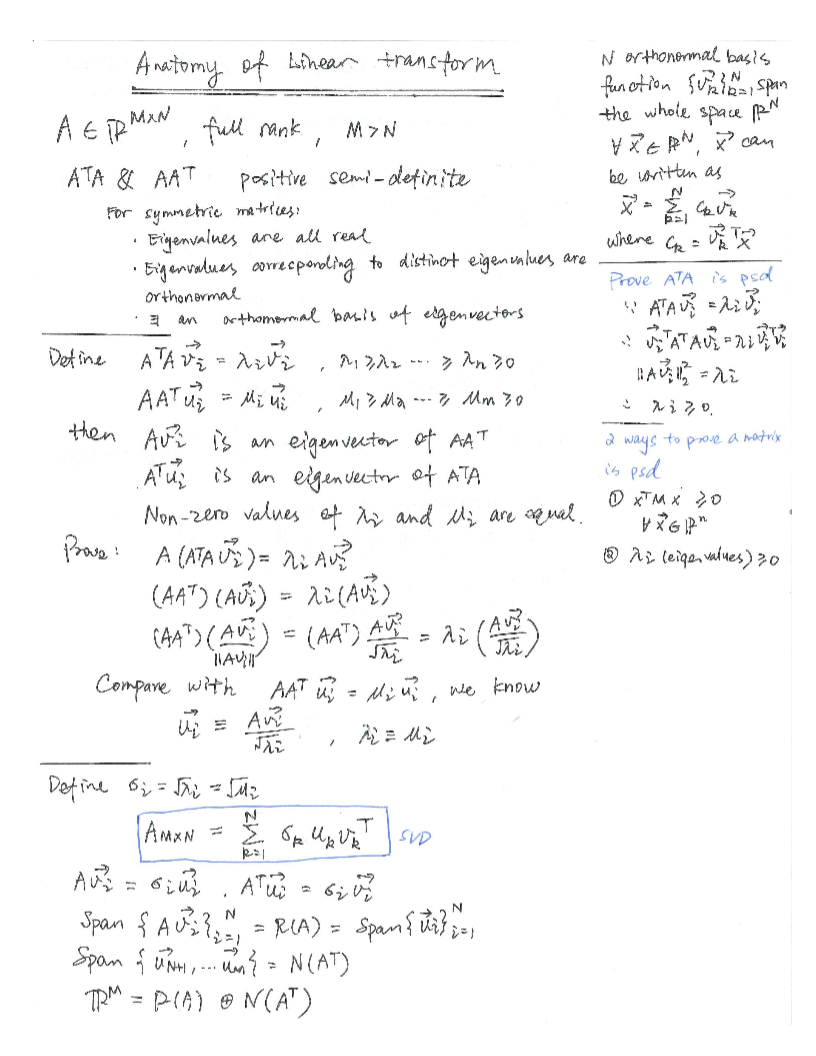 Anatomy of Linear transform
A ∈ ℝ^{M×N}, full rank, M>N
AᵀA & AAᵀ positive semi-definite
For symmetric matrices:
· Eigenvalues are all real
· Eigenvalues corresponding to distinct eigenvalues are
orthonormal
· ∃ an orthonormal basis of eigenvectors
Define AᵀA v⃗ᵢ = λᵢ v⃗ᵢ , λ₁ ≥ λ₂ ··· ≥ λₙ ≥ 0
AAᵀ u⃗ᵢ = μᵢ u⃗ᵢ , μ₁ ≥ μ₂ ··· ≥ μₘ ≥ 0
then Av⃗ᵢ is an eigenvector of AAᵀ
Aᵀu⃗ᵢ is an eigenvector of AᵀA
Non-zero values of λᵢ and μᵢ are equal.
Prove: A (AᵀA v⃗ᵢ) = λᵢ A v⃗ᵢ
(AAᵀ)(Av⃗ᵢ) = λᵢ(Av⃗ᵢ)
(AAᵀ)(Av⃗ᵢ / ||Av⃗ᵢ||) = (AAᵀ) Av⃗ᵢ / √λᵢ = λᵢ (Av⃗ᵢ / √λᵢ)
Compare with AAᵀ u⃗ᵢ = μᵢ u⃗ᵢ, we know
u⃗ᵢ ≡ Av⃗ᵢ / √λᵢ , λᵢ ≡ μᵢ
Define σᵢ = √λᵢ = √μᵢ
A_{M×N} = ∑_{k=1}^{N} σₖ uₖ vₖᵀ SVD
Av⃗ᵢ = σᵢ u⃗ᵢ . Aᵀu⃗ᵢ = σᵢ v⃗ᵢ
Span {Av⃗ᵢ}_{i=1}^{N} = R(A) = Span{u⃗ᵢ}_{i=1}^{N}
Span {u⃗_{N+1}, ... u⃗ₘ} = N(Aᵀ)
ℝᴹ = R(A) ⊕ N(Aᵀ)
N orthonormal basis
function {v⃗ₖ}_{k=1}^{N} span
the whole space ℝᴺ
∀ x⃗ ∈ ℝᴺ, x⃗ can
be written as
x⃗ = ∑_{k=1}^{N} cₖ v⃗ₖ
where cₖ = v⃗ₖᵀ x⃗
Prove AᵀA is psd
∵ AᵀA v⃗ᵢ = λᵢ v⃗ᵢ
∴ v⃗ᵢᵀAᵀA v⃗ᵢ = λᵢ v⃗ᵢᵀ v⃗ᵢ
||A v⃗ᵢ||₂² = λᵢ
∴ λᵢ ≥ 0.
2 ways to prove a matrix
is psd
① xᵀMx ≥ 0
∀ x⃗ ∈ ℝⁿ
② λᵢ (eigenvalues) ≥ 0